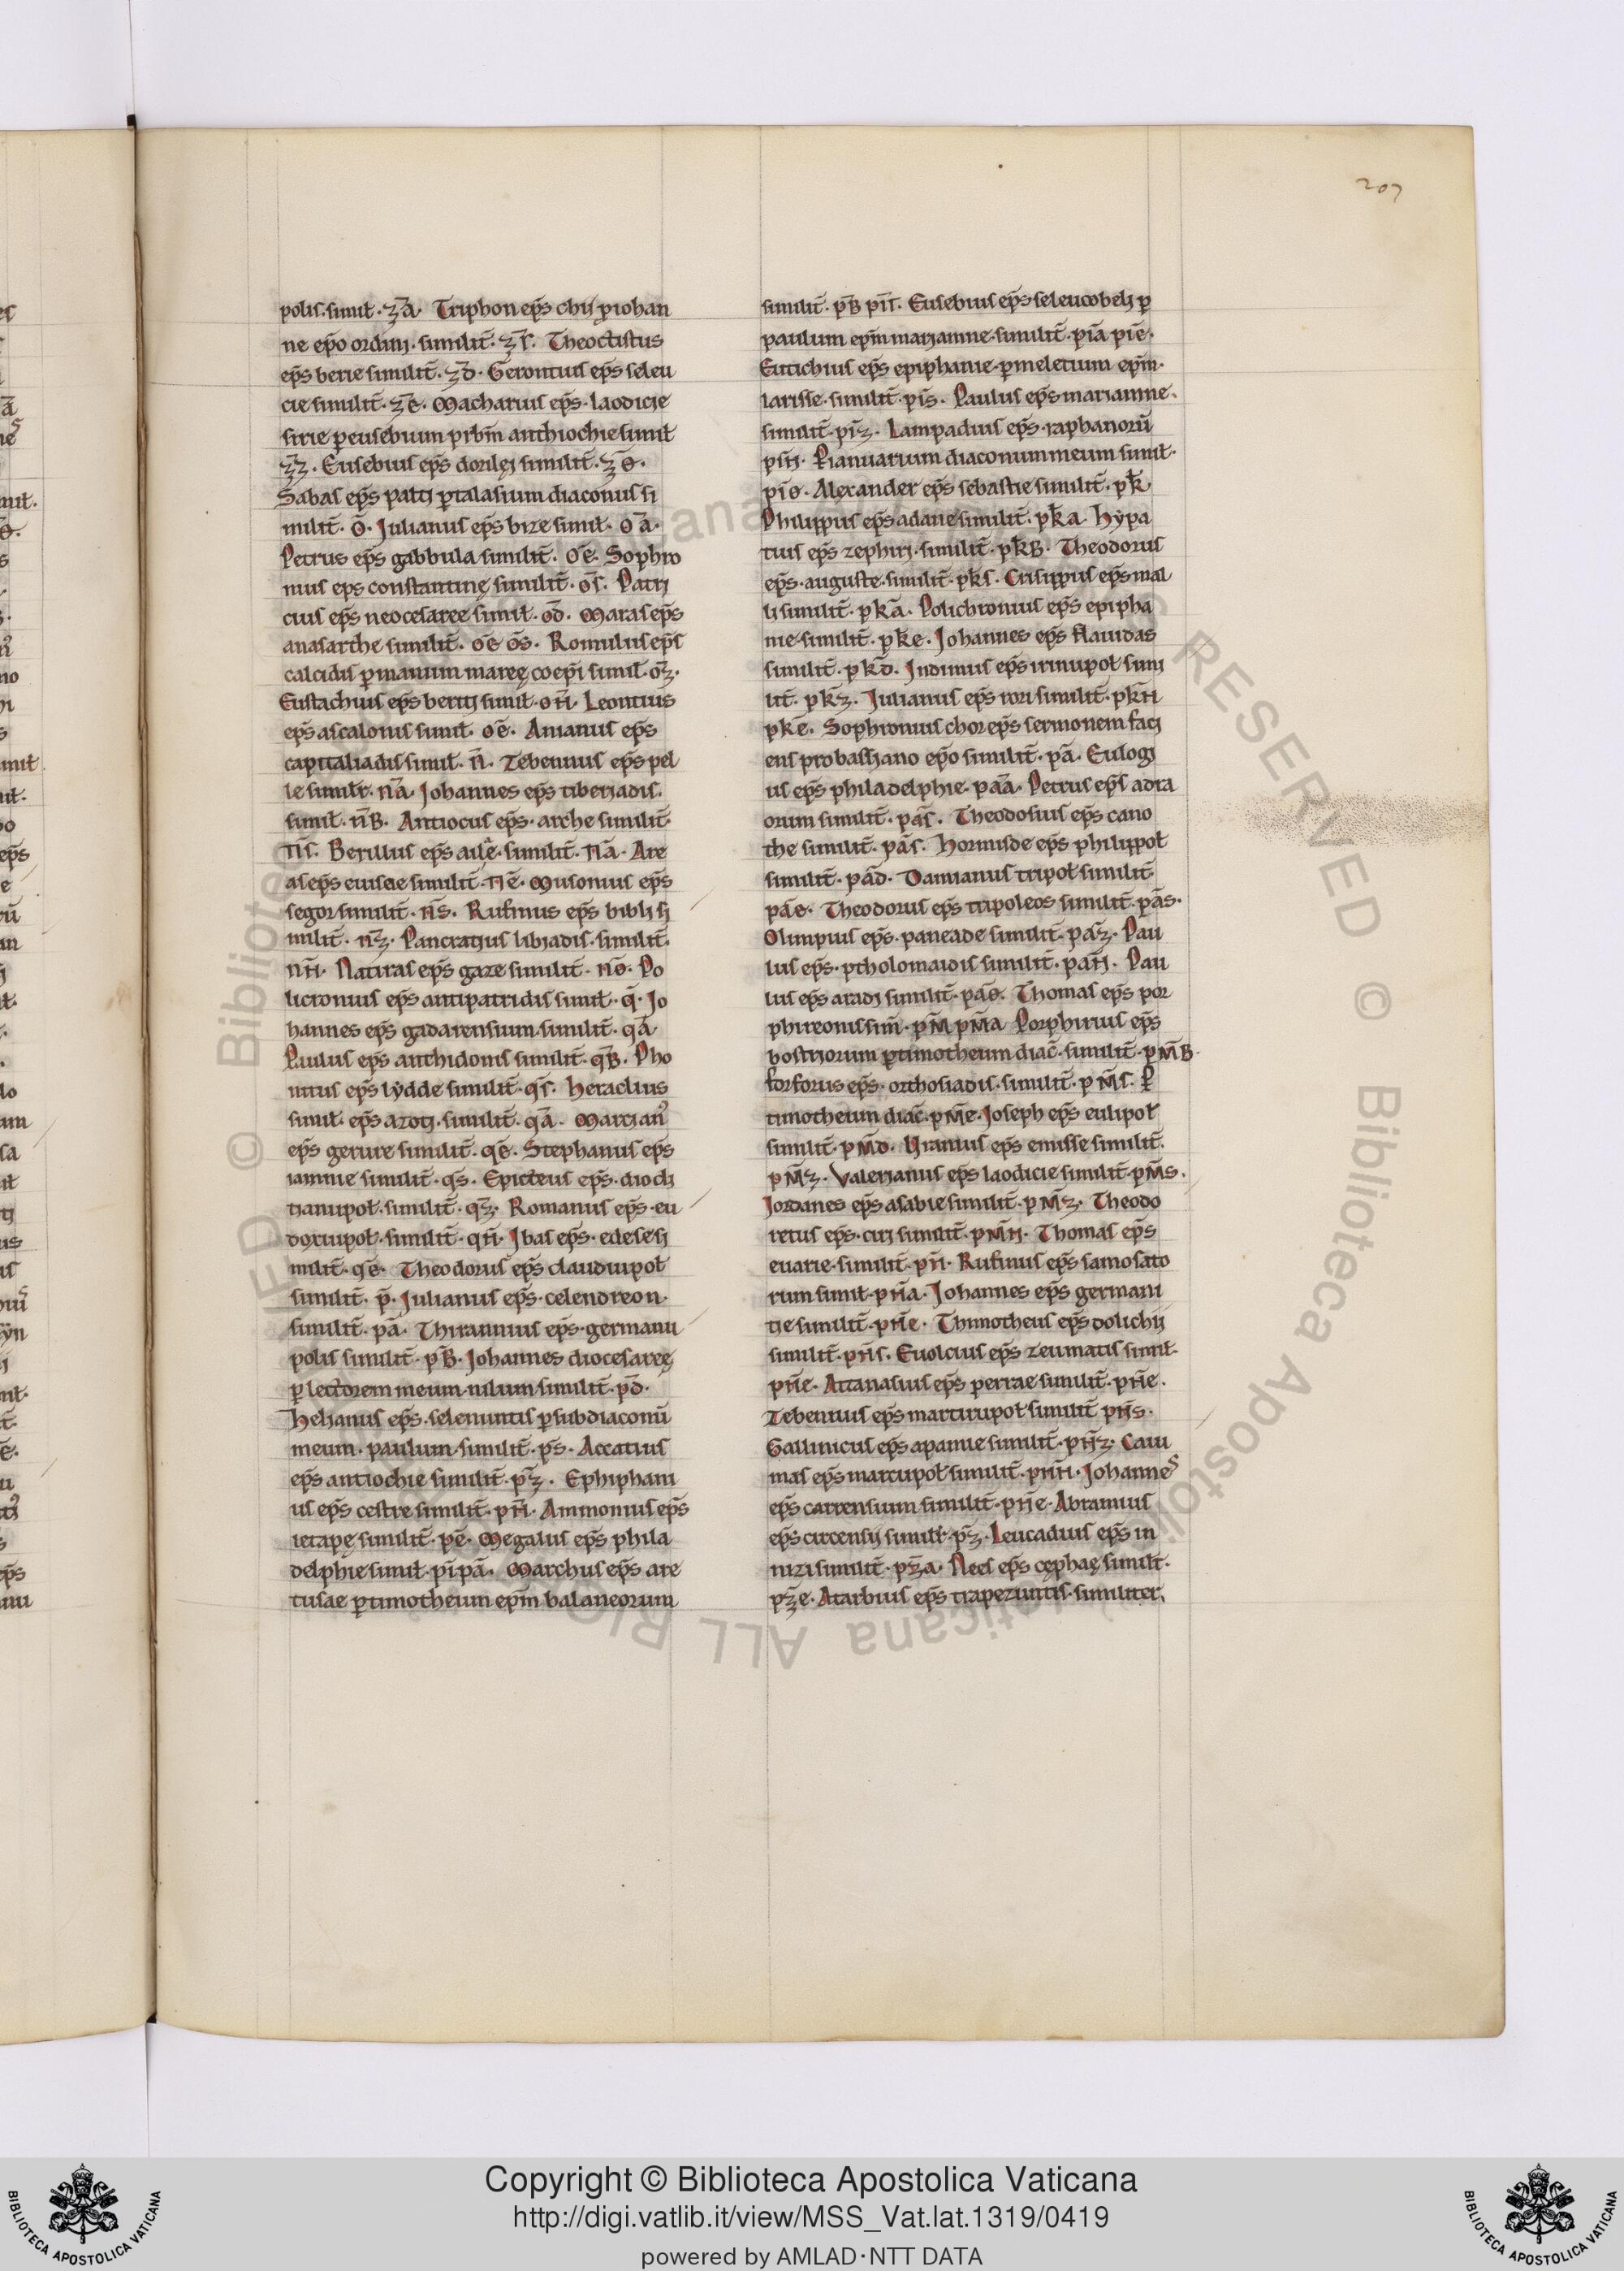 207
polis. simil̄. ʒ̄a. Triphon ep̄s chij p̱ iohan
ne ep̄o ordinj. similit̄. ʒ̄s. Theoctistus
ep̄s berie similit̄. ʒ̄d. Gerontius ep̄s seleu
cie similit̄. ʒ̄e. Macharius ep̄s. laodicie
sirie p̱ eusebium prb̄m anthiochie simil̄
ʒ̄ʒ. Eusebius ep̄s dorilęj similit̄. ʒ̄ө.
Sabas ep̄s paltj p̱ talasium diaconus si
milit̄. ō. Julianus ep̄s bize simil̄. ōa.
Petrus ep̄s gabbula similit̄. ōe. Sophro
nius eps constantinę similit̄. ōs. Patrj
cius ep̄s neocesaree simil̄. ōd. Maras ep̄s
anasarthe similit̄. ōe ōs. Romulus ep̄s
calcidis p̱ manum maręę coep̄i simil̄. ōʒ.
Eustachius ep̄s beritj simil̄. on̄. Leontius
ep̄s ascalonis simil̄. ōe. Anianus ep̄s
capitaliadis simil̄. n̄. Zebennus ep̄s pel
le similr̄. n̄a. Johannes ep̄s tiberjadis.
simil̄. n̄B. Antiocus ep̄s. arche similit̄
n̄s. Berillus ep̄s ailę. similit̄. n̄a. Are
as ep̄s euisae similit̄. n̄e. Musonius ep̄s
segor similit̄. n̄s. Rufinus ep̄s biblj si
milit̄. n̄ʒ. Pancratjus libjadis. similit̄.
nn̄. Natiras ep̄s gaze similit̄. n̄ө. Po
licronius ep̄s antipatridis simil̄. q̄. Jo
hannes ep̄s gadarensium similit̄. q̄a
Paulus ep̄s anthidonis similit̄. q̄B. Pho
ntius ep̄s lydde similit̄. q̄s. heraclius
simil̄. ep̄s azotj. similit̄. q̄a. Marcian᾽
ep̄s gerure similit̄. q̄e. Stephanus ep̄s
iamnie similit̄. q̄s. Epicteus ep̄s. dioclj
tianupol̄. similit̄. q̄ʒ. Romanus ep̄s. eu
doxiupol̄. similit̄. qn̄. Jbas ep̄s. edese si
milit̄. q̄e. Theodorus ep̄s claudiupol̄
similit̄. p̄. Julianus ep̄s. celendreon.
similit̄. p̄a. Thirannius ep̄s. germanu
polis similit̄. p̄B. Johannes diocesareę
p̱ lectorem meum. nilum similit̄. p̄d.
helianus ep̄s. selenuntis p̱ subdiaconū
meum. paulum. similit̄. p̄s. Accatius
ep̄s antiochie similit̄. p̄ʒ. Ephiphani
us ep̄s cestre similit̄. pn̄. Ammonius ep̄s
ierapę similit̄. p̄e. Megalus ep̄s phila
delphie simil̄. pī pā. Marchus ep̄s are
tusae p̱ timotheum ep̄m balaneorum
similit̄. p̄B pīs. Eusebius ep̄s seleucobelj p̱
paulum ep̄m marjamne. similit̄. pīa pīe.
Eutichius ep̄s epiphanie. p̱ meletium ep̄m.
larisse. similit̄. pīs. Paulus ep̄s marianme.
similit̄. pīʒ. Lampadius ep̄s. raphanorū
psn̄. P̱ ianuarium diaconum meum simil̄.
pīө. Alexander ep̄s sebastie similit̄. pk̄
Philippus ep̄s adane similit̄. pk̄a. hypa
tius ep̄s zephirj. similit̄. pk̄B. Theodorus
ep̄s. auguste. similit̄. pk̄s. Crisippus ep̄s mal
li similit̄. pk̄a. Polichronius ep̄s epipha
nie similit̄. pk̄e. Johannes ep̄s flauidas
similit̄. pk̄d. Jndimus ep̄s irinupol̄ simj
lit̄. pk̄ʒ. Julianus ep̄s rori similit̄. pk̄n
pk̄e. Sophronius chor ep̄s sermonem faci
ens pro bassiano ep̄o similit̄. pā. Eulogi
us ep̄s philadelphie. pāa. Petrus ep̄s adra
orum similit̄. pās. Theodosius ep̄s cano
the similit̄. pās. hormisde ep̄s philippol̄
similit̄. pād. Damianus tripol̄ similit̄
pāe. Theodorus ep̄s tripoleos similit̄. pās.
Olimpius ep̄s. paneade similit̄. pāʒ. Pau
lus ep̄s. ptholomaidis similit̄. pān. Pau
lus ep̄s aradj similit̄. pāө. Thomas ep̄s por
phireonis sim̄. pM̄ pM̄a Porphirius ep̄s
bostriorum p̱ timotheum diac̄. similit̄. pM̄B.
forforus ep̄s. orthosiadis. similit̄. pM̄s. P̱
timotheum diac̄. pM̄e. Joseph ep̄s eulipol̄
similit̄. pM̄d. Uranius ep̄s emisse similit̄.
pM̄ʒ. Valerianus ep̄s laodicie similit̄. pM̄s.
Jordanes ep̄s asabie similit̄. pM̄ʒ. Theodo
retus ep̄s. cirj similit̄. pM̄n. Thomas ep̄s
euarie. similit̄. pn̄. Rufinus ep̄s samosato
rum simil̄. pn̄a. Johannes ep̄s germani
tie similit̄. pn̄e. Thimotheus ep̄s dolichij
similit̄. pn̄s. Euolcius ep̄s zeumatis simil̄.
pn̄e. Attanasius ep̄s perrae similit̄. pn̄e.
Zebenius ep̄s martirupol̄ similit̄ pn̄s.
Gallinicus ep̄s apamie similit̄. pn̄ʒ. Caiu
mas ep̄s marcupol̄ similit̄. pnn̄. Johannes
ep̄s carrensium similit̄. pn̄e. Abramius
ep̄s circensij similr̄. p̄ʒ. Leucadius ep̄s in
nizi similit̄. pʒ̄a. Neel ep̄s cęphaę similt̄.
pʒ̄e. Atarbius ep̄s trapezuntis. similiter.
Copyright © Biblioteca Apostolica Vaticana
http://digi.vatlib.it/view/MSS_Vat.lat.1319/0419
powered by AMLAD·NTT DATA